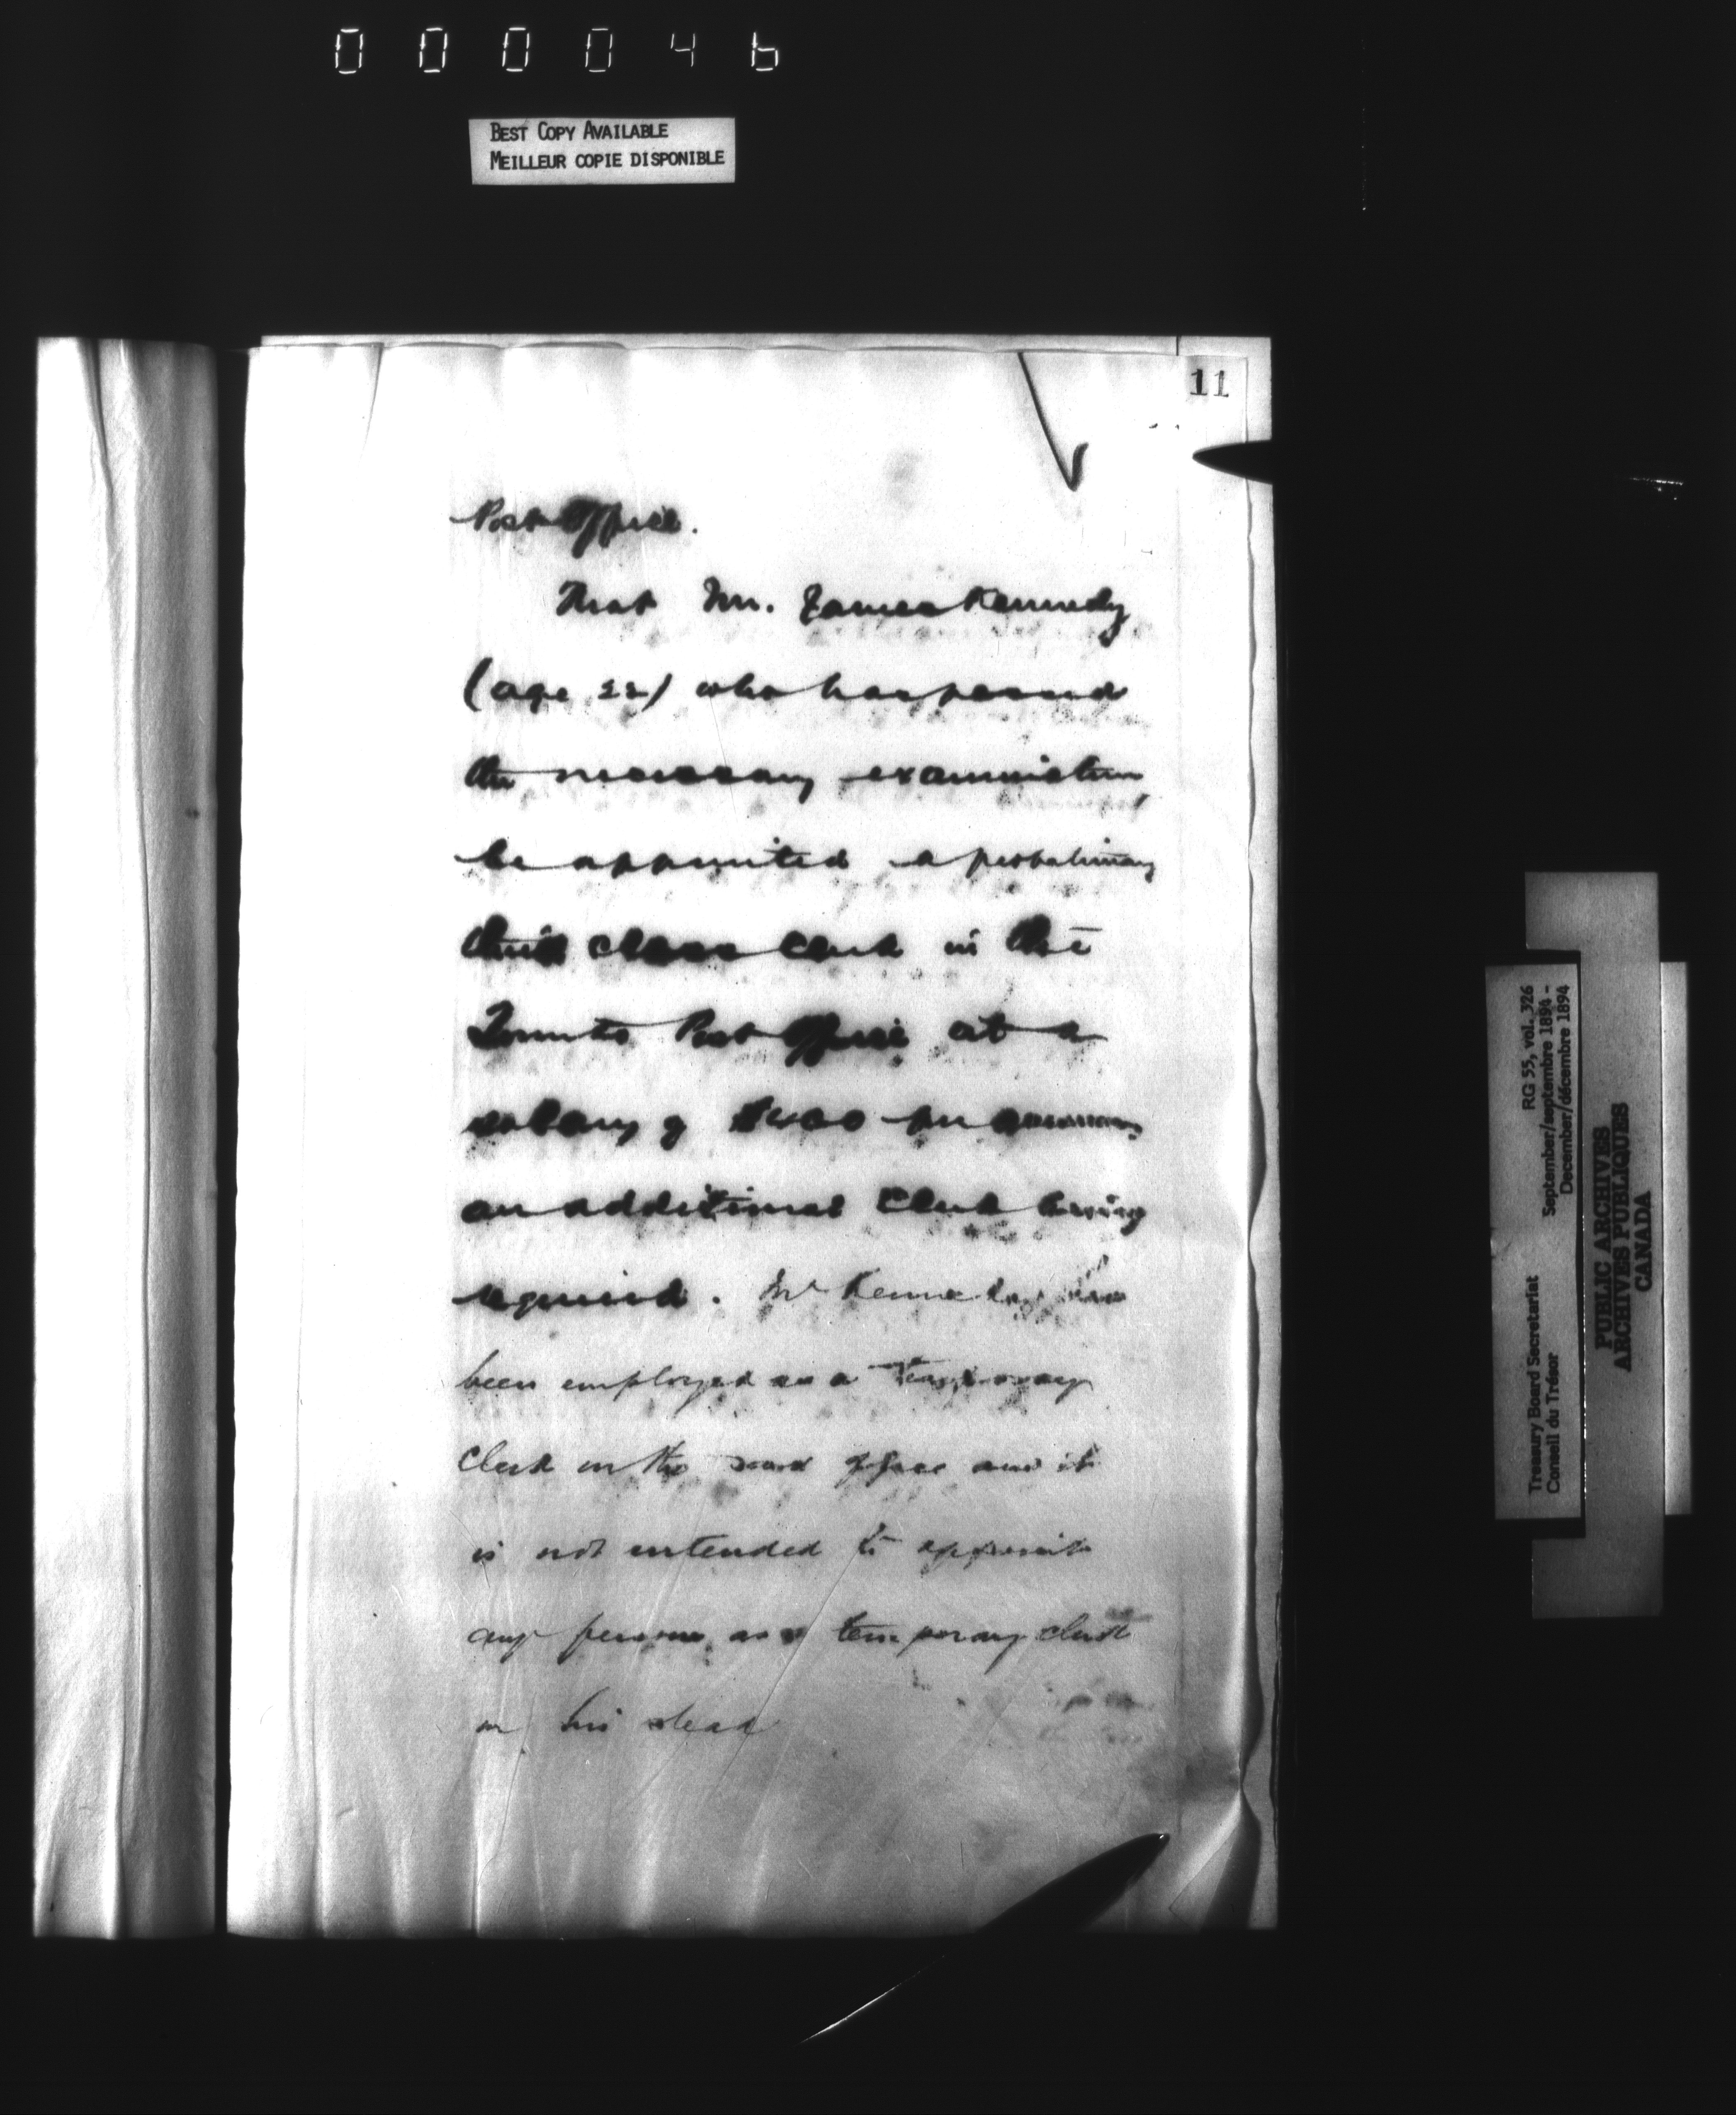 000046
BEST COPY AVAILABLE
MEILLEUR COPIE DISPONIBLE
11
Post Office.
That Mr. James Kennedy
(age 22) who has passed
the necessary examination,
be appointed a probationary
third class Clerk in the
Toronto Post Office at a
salary of $400 per annum
an additional Clerk being
required. Mr Kennedy has
been employed as a temporary
Clerk in the said office and it
is not intended to appoint
any person as a temporary clerk
in his stead
Treasury Board Secretariat RG 55, vol. 326
Conseil du Trésor September/septembre 1894 -
December/décembre 1894
PUBLIC ARCHIVES
ARCHIVES PUBLIQUES
CANADA